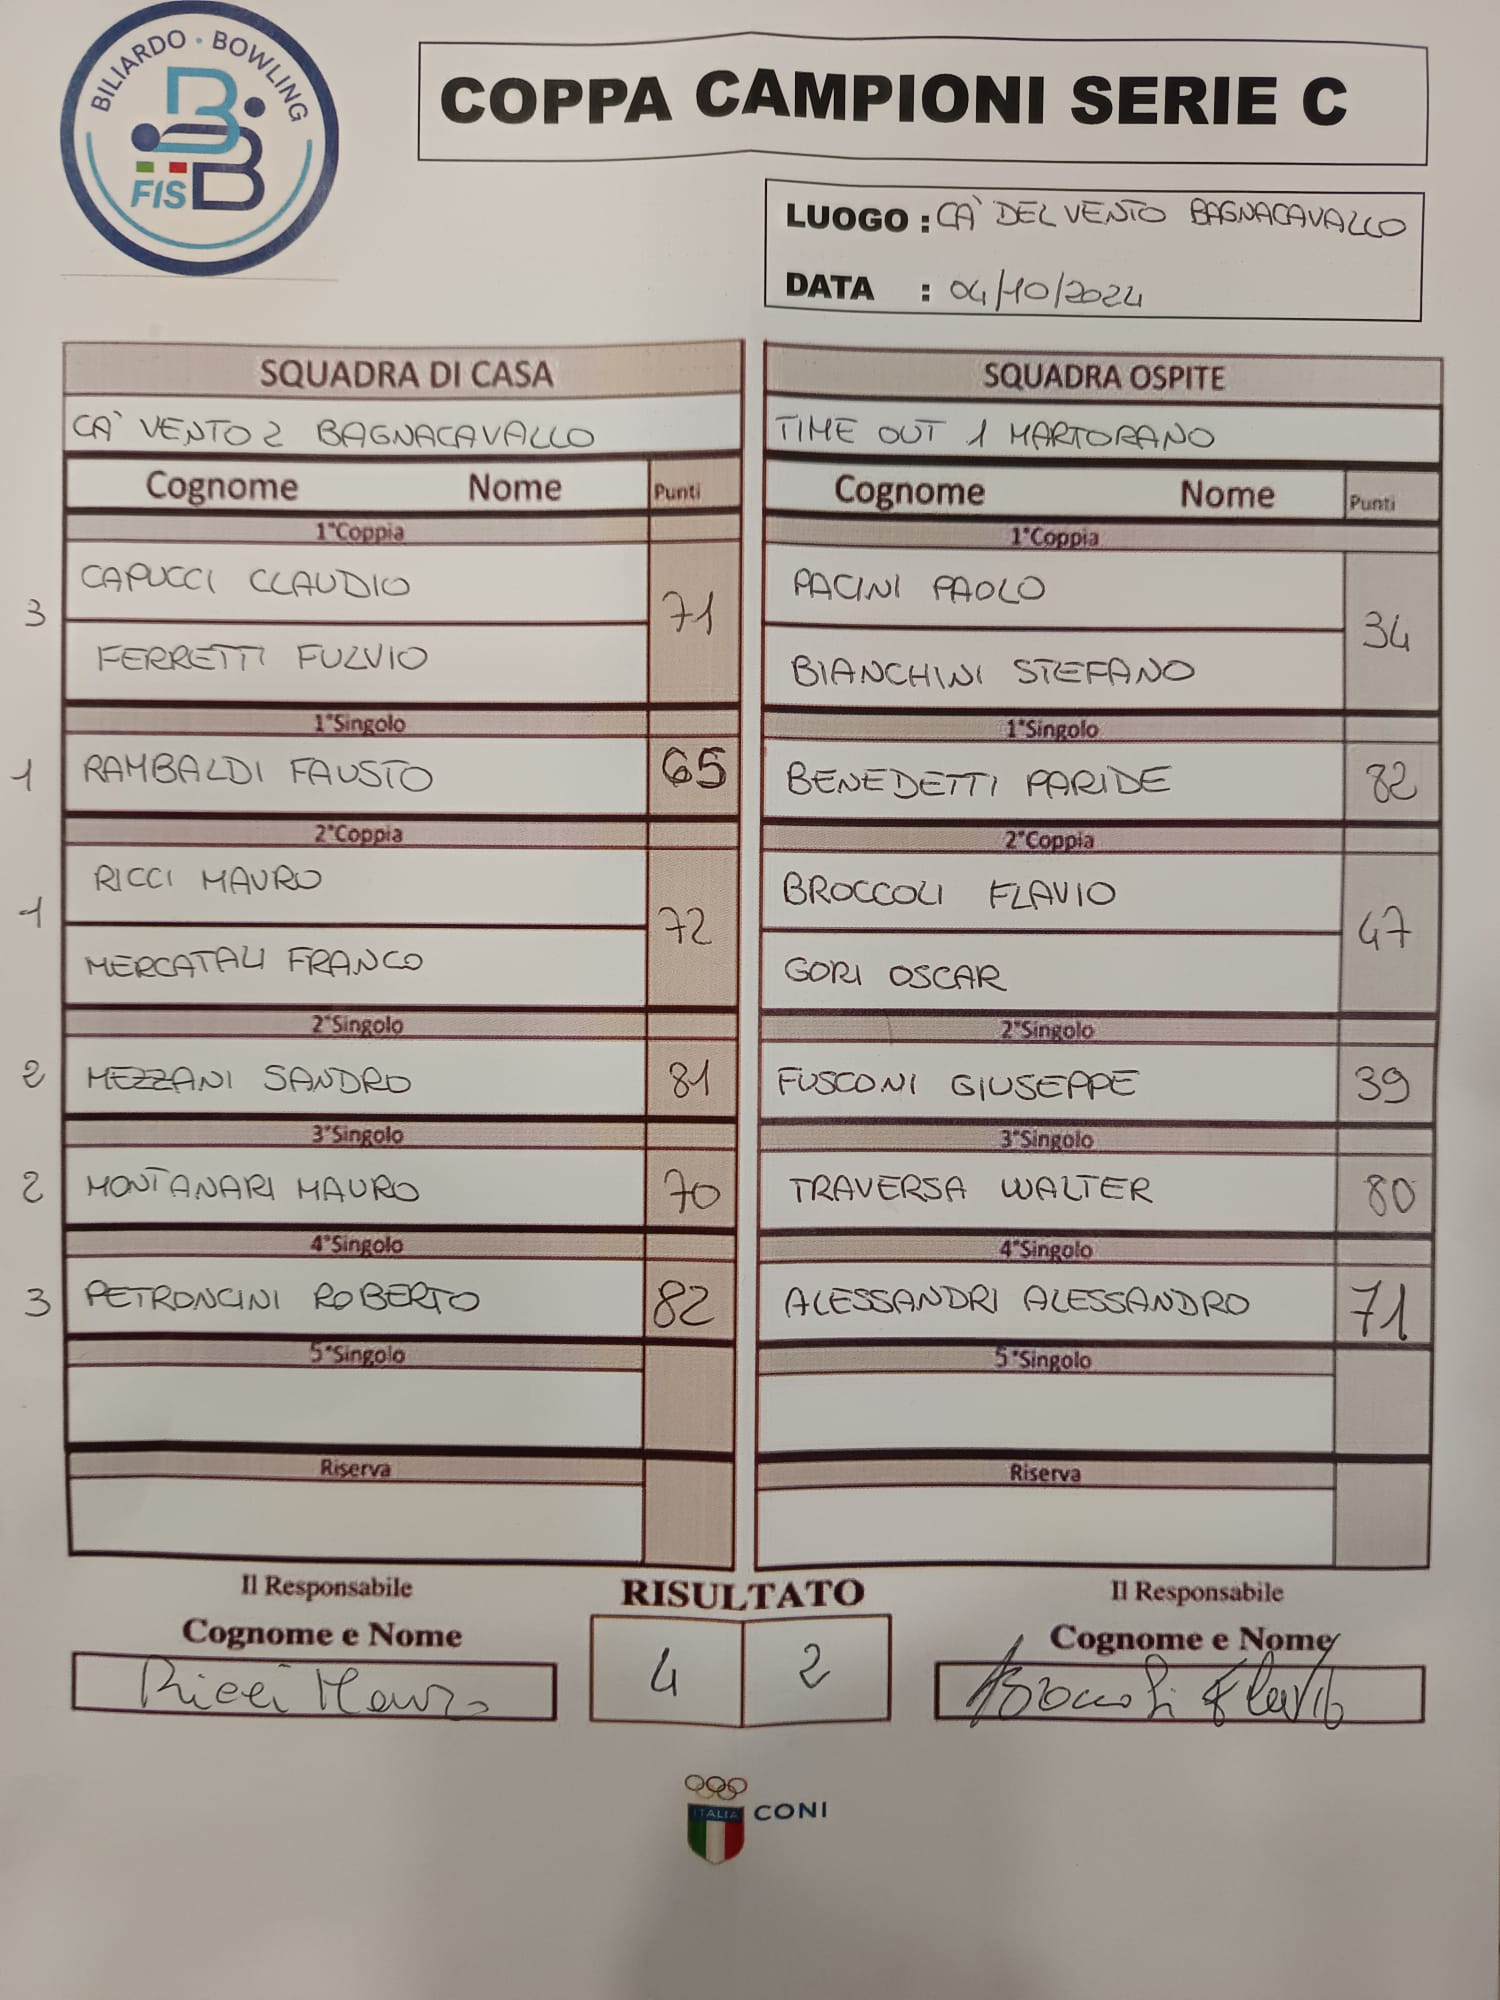 BILIARDO · BOWLING
FISBB
COPPA CAMPIONI SERIE C
LUOGO : CA' DEL VENTO BAGNACAVALLO
DATA : 04/10/2024
SQUADRA DI CASA
CA' VENTO 2 BAGNACAVALLO
Cognome Nome Punti
1°Coppia
3 CAPUCCI CLAUDIO
71
FERRETTI FULVIO
1°Singolo
1 RAMBALDI FAUSTO 65
2°Coppia
1 RICCI MAURO
72
MERCATALI FRANCO
2°Singolo
2 MEZZANI SANDRO 81
3°Singolo
2 MONTANARI MAURO 70
4°Singolo
3 PETRONCINI ROBERTO 82
5°Singolo
Riserva
SQUADRA OSPITE
TIME OUT 1 MARTORANO
Cognome Nome Punti
1°Coppia
PACINI PAOLO
34
BIANCHINI STEFANO
1°Singolo
BENEDETTI PARIDE 82
2°Coppia
BROCCOLI FLAVIO
47
GORI OSCAR
2°Singolo
FUSCONI GIUSEPPE 39
3°Singolo
TRAVERSA WALTER 80
4°Singolo
ALESSANDRI ALESSANDRO 71
5°Singolo
Riserva
Il Responsabile
Cognome e Nome
Ricci Mauro
RISULTATO
4 2
Il Responsabile
Cognome e Nome
Broccoli Flavio
ITALIA
CONI